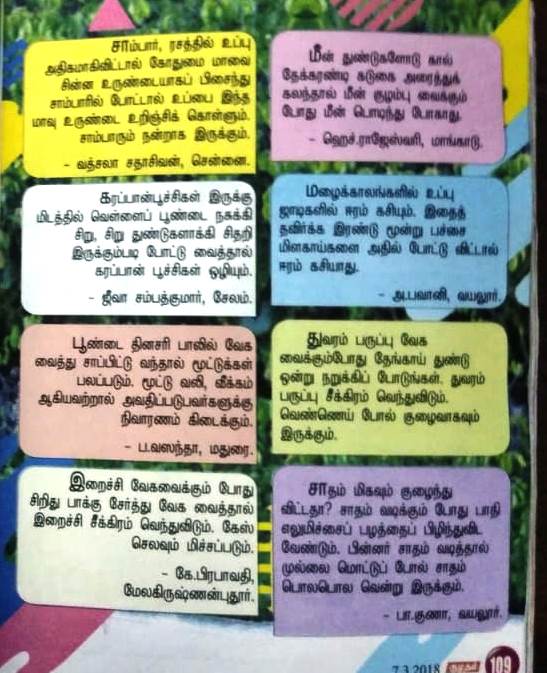 சாம்பார், ரசத்தில் உப்பு
அதிகமாகிவிட்டால் கோதுமை மாவை
சின்ன உருண்டையாகப் பிசைந்து
சாம்பாரில் போட்டால் உப்பை இந்த
மாவு உருண்டை உறிஞ்சிக் கொள்ளும்.
சாம்பாரும் நன்றாக இருக்கும்.
- வத்சலா சதாசிவன், சென்னை.
கரப்பான்பூச்சிகள் இருக்கு
மிடத்தில் வெள்ளைப் பூண்டை நசுக்கி
சிறு, சிறு துண்டுகளாக்கி சிதறி
இருக்கும்படி போட்டு வைத்தால்
கரப்பான் பூச்சிகள் ஒழியும்.
- ஜீவா சம்பத்குமார், சேலம்.
பூண்டை தினசரி பாலில் வேக
வைத்து சாப்பிட்டு வந்தால் மூட்டுக்கள்
பலப்படும். மூட்டு வலி, வீக்கம்
ஆகியவற்றால் அவதிப்படுபவர்களுக்கு
நிவாரணம் கிடைக்கும்.
- ப.வஸந்தா, மதுரை.
இறைச்சி வேகவைக்கும் போது
சிறிது பாக்கு சேர்த்து வேக வைத்தால்
இறைச்சி சீக்கிரம் வெந்துவிடும். கேஸ்
செலவும் மிச்சப்படும்.
- கே.பிரபாவதி,
மேலகிருஷ்ணன்புதூர்.
மீன் துண்டுகளோடு கால்
தேக்கரண்டி கடுகை அரைத்துக்
கலந்தால் மீன் குழம்பு வைக்கும்
போது மீன் பொடிந்து போகாது.
- ஹெச்.ராஜேஸ்வரி, மாங்காடு.
மழைக்காலங்களில் உப்பு
ஜாடிகளில் ஈரம் கசியும். இதைத்
தவிர்க்க இரண்டு மூன்று பச்சை
மிளகாய்களை அதில் போட்டு விட்டால்
ஈரம் கசியாது.
- அ.பவானி, வயலூர்.
துவரம் பருப்பு வேக
வைக்கும்போது தேங்காய் துண்டு
ஒன்று நறுக்கிப் போடுங்கள். துவரம்
பருப்பு சீக்கிரம் வெந்துவிடும்.
வெண்ணெய் போல் குழைவாகவும்
இருக்கும்.
சாதம் மிகவும் குழைந்து
விட்டதா? சாதம் வடிக்கும் போது பாதி
எலுமிச்சைப் பழத்தைப் பிழிந்துவிட
வேண்டும். பின்னர் சாதம் வடித்தால்
முல்லை மொட்டுப் போல் சாதம்
பொலபொல வென்று இருக்கும்.
- பா.குணா, வயலூர்.
7.3.2018 குமுதம் 109